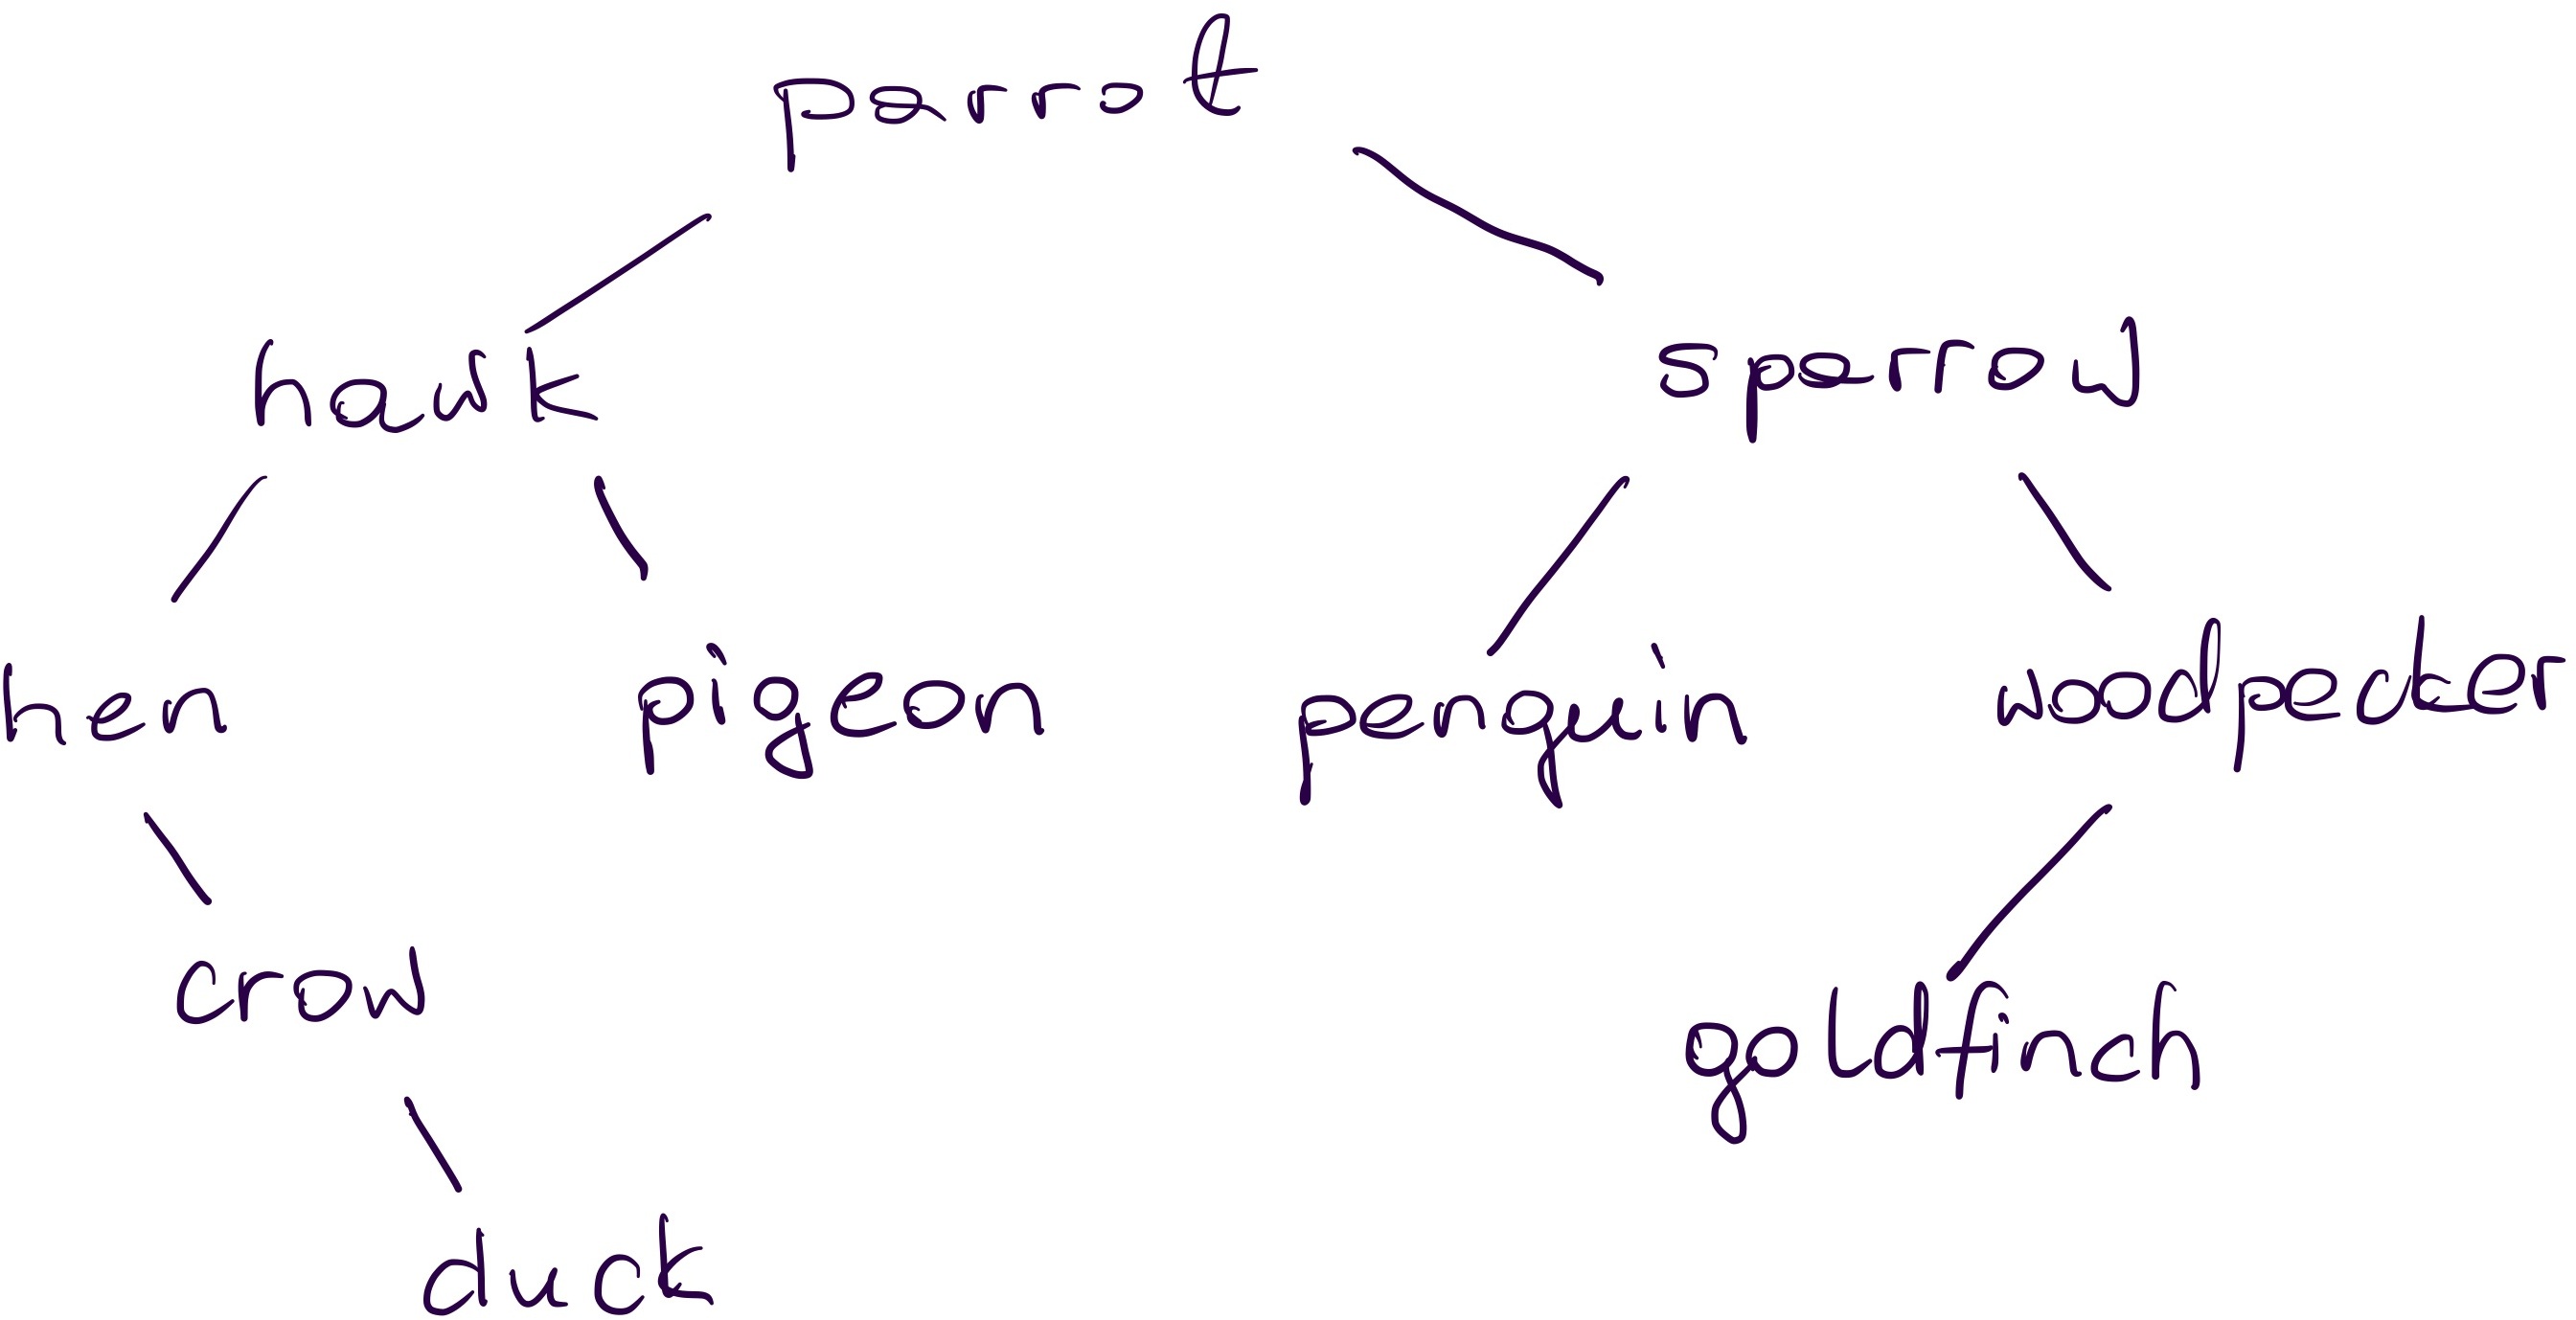 parrot
hawk sparrow
hen pigeon penguin woodpecker
crow goldfinch
duck